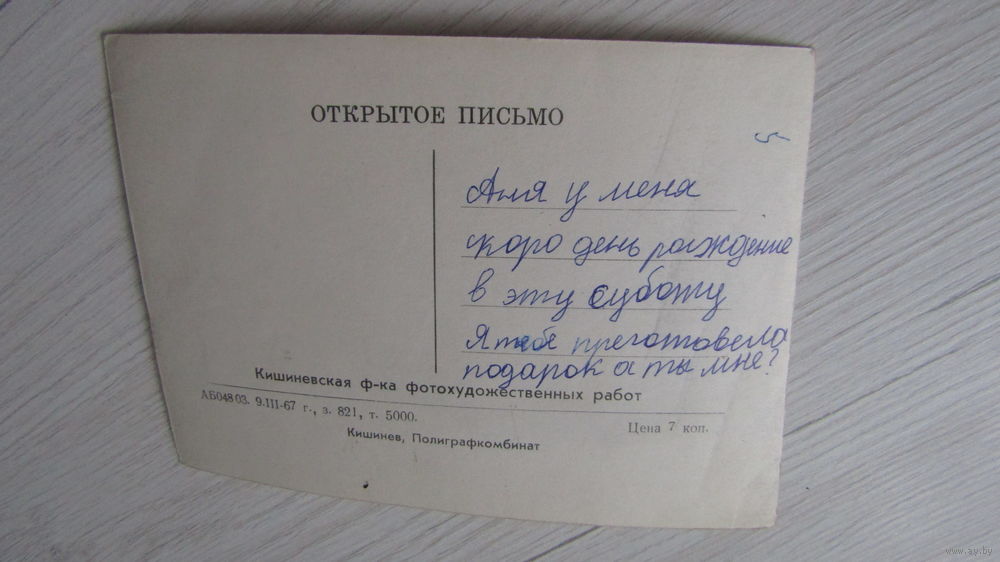 ОТКРЫТОЕ ПИСЬМО
5
Аля у меня
скоро день рождение
в эту суботу
Я тебе преготовела
подарок а ты мне?
Кишиневская ф-ка фотохудожественных работ
АБ04803. 9.III-67 г., з. 821, т. 5000.
Цена 7 коп.
Кишинев, Полиграфкомбинат
www.ay.by